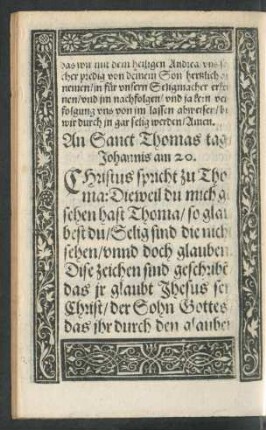 das wir mit dem heiligen Andrea vns
cher predig von deinem Son hertzlich
nemen/in für vnsern Seligmacher erke
nen/vnd im nachfolgen/ vnd ja kein ver
folgung vns von im lassen abweisen/
wir durch in gar selig werden/Amen.
An Sanct Thomas tag
Johannis am 20.
CHristus spricht zu Tho
ma: Dieweil du mich g
sehen hast Thoma/ so glau
best du/Selig sind die nich
sehen/vnnd doch glauben
Dise zeichen sind geschribẽ
das jr glaubt Jhesus sei
Christ/ der Sohn Gottes
das jhr durch den glauben